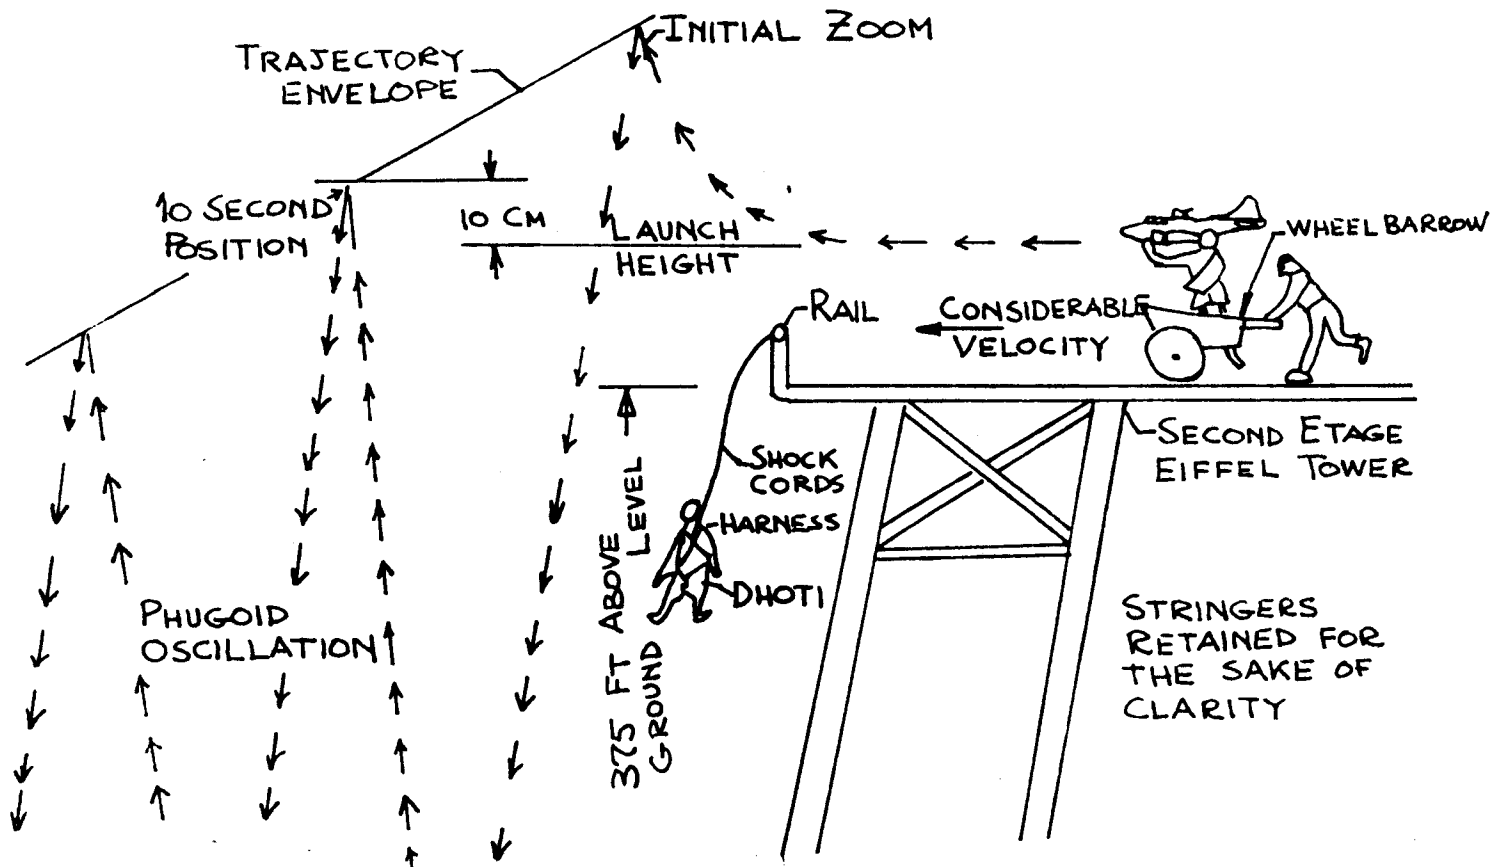 INITIAL ZOOM
TRAJECTORY
ENVELOPE
10 SECOND
POSITION
10 CM
LAUNCH
HEIGHT
WHEEL BARROW
RAIL
CONSIDERABLE
VELOCITY
SECOND ETAGE
EIFFEL TOWER
SHOCK
CORDS
HARNESS
DHOTI
375 FT ABOVE
GROUND LEVEL
PHUGOID
OSCILLATION
STRINGERS
RETAINED FOR
THE SAKE OF
CLARITY